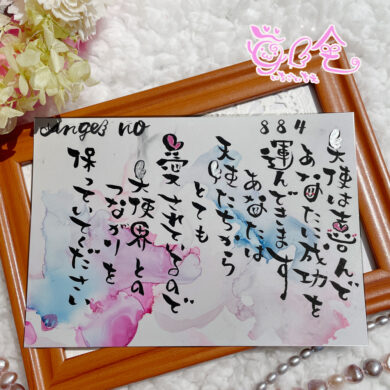 Angel no 884
天使は喜んで
あなたに成功を
運んできます
あなたは
天使たちから
とても
愛されているので
天使界との
つながりを
保っていてください